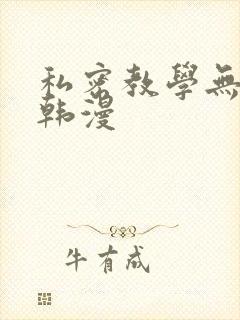 私密教學無
韩漫
牛有成